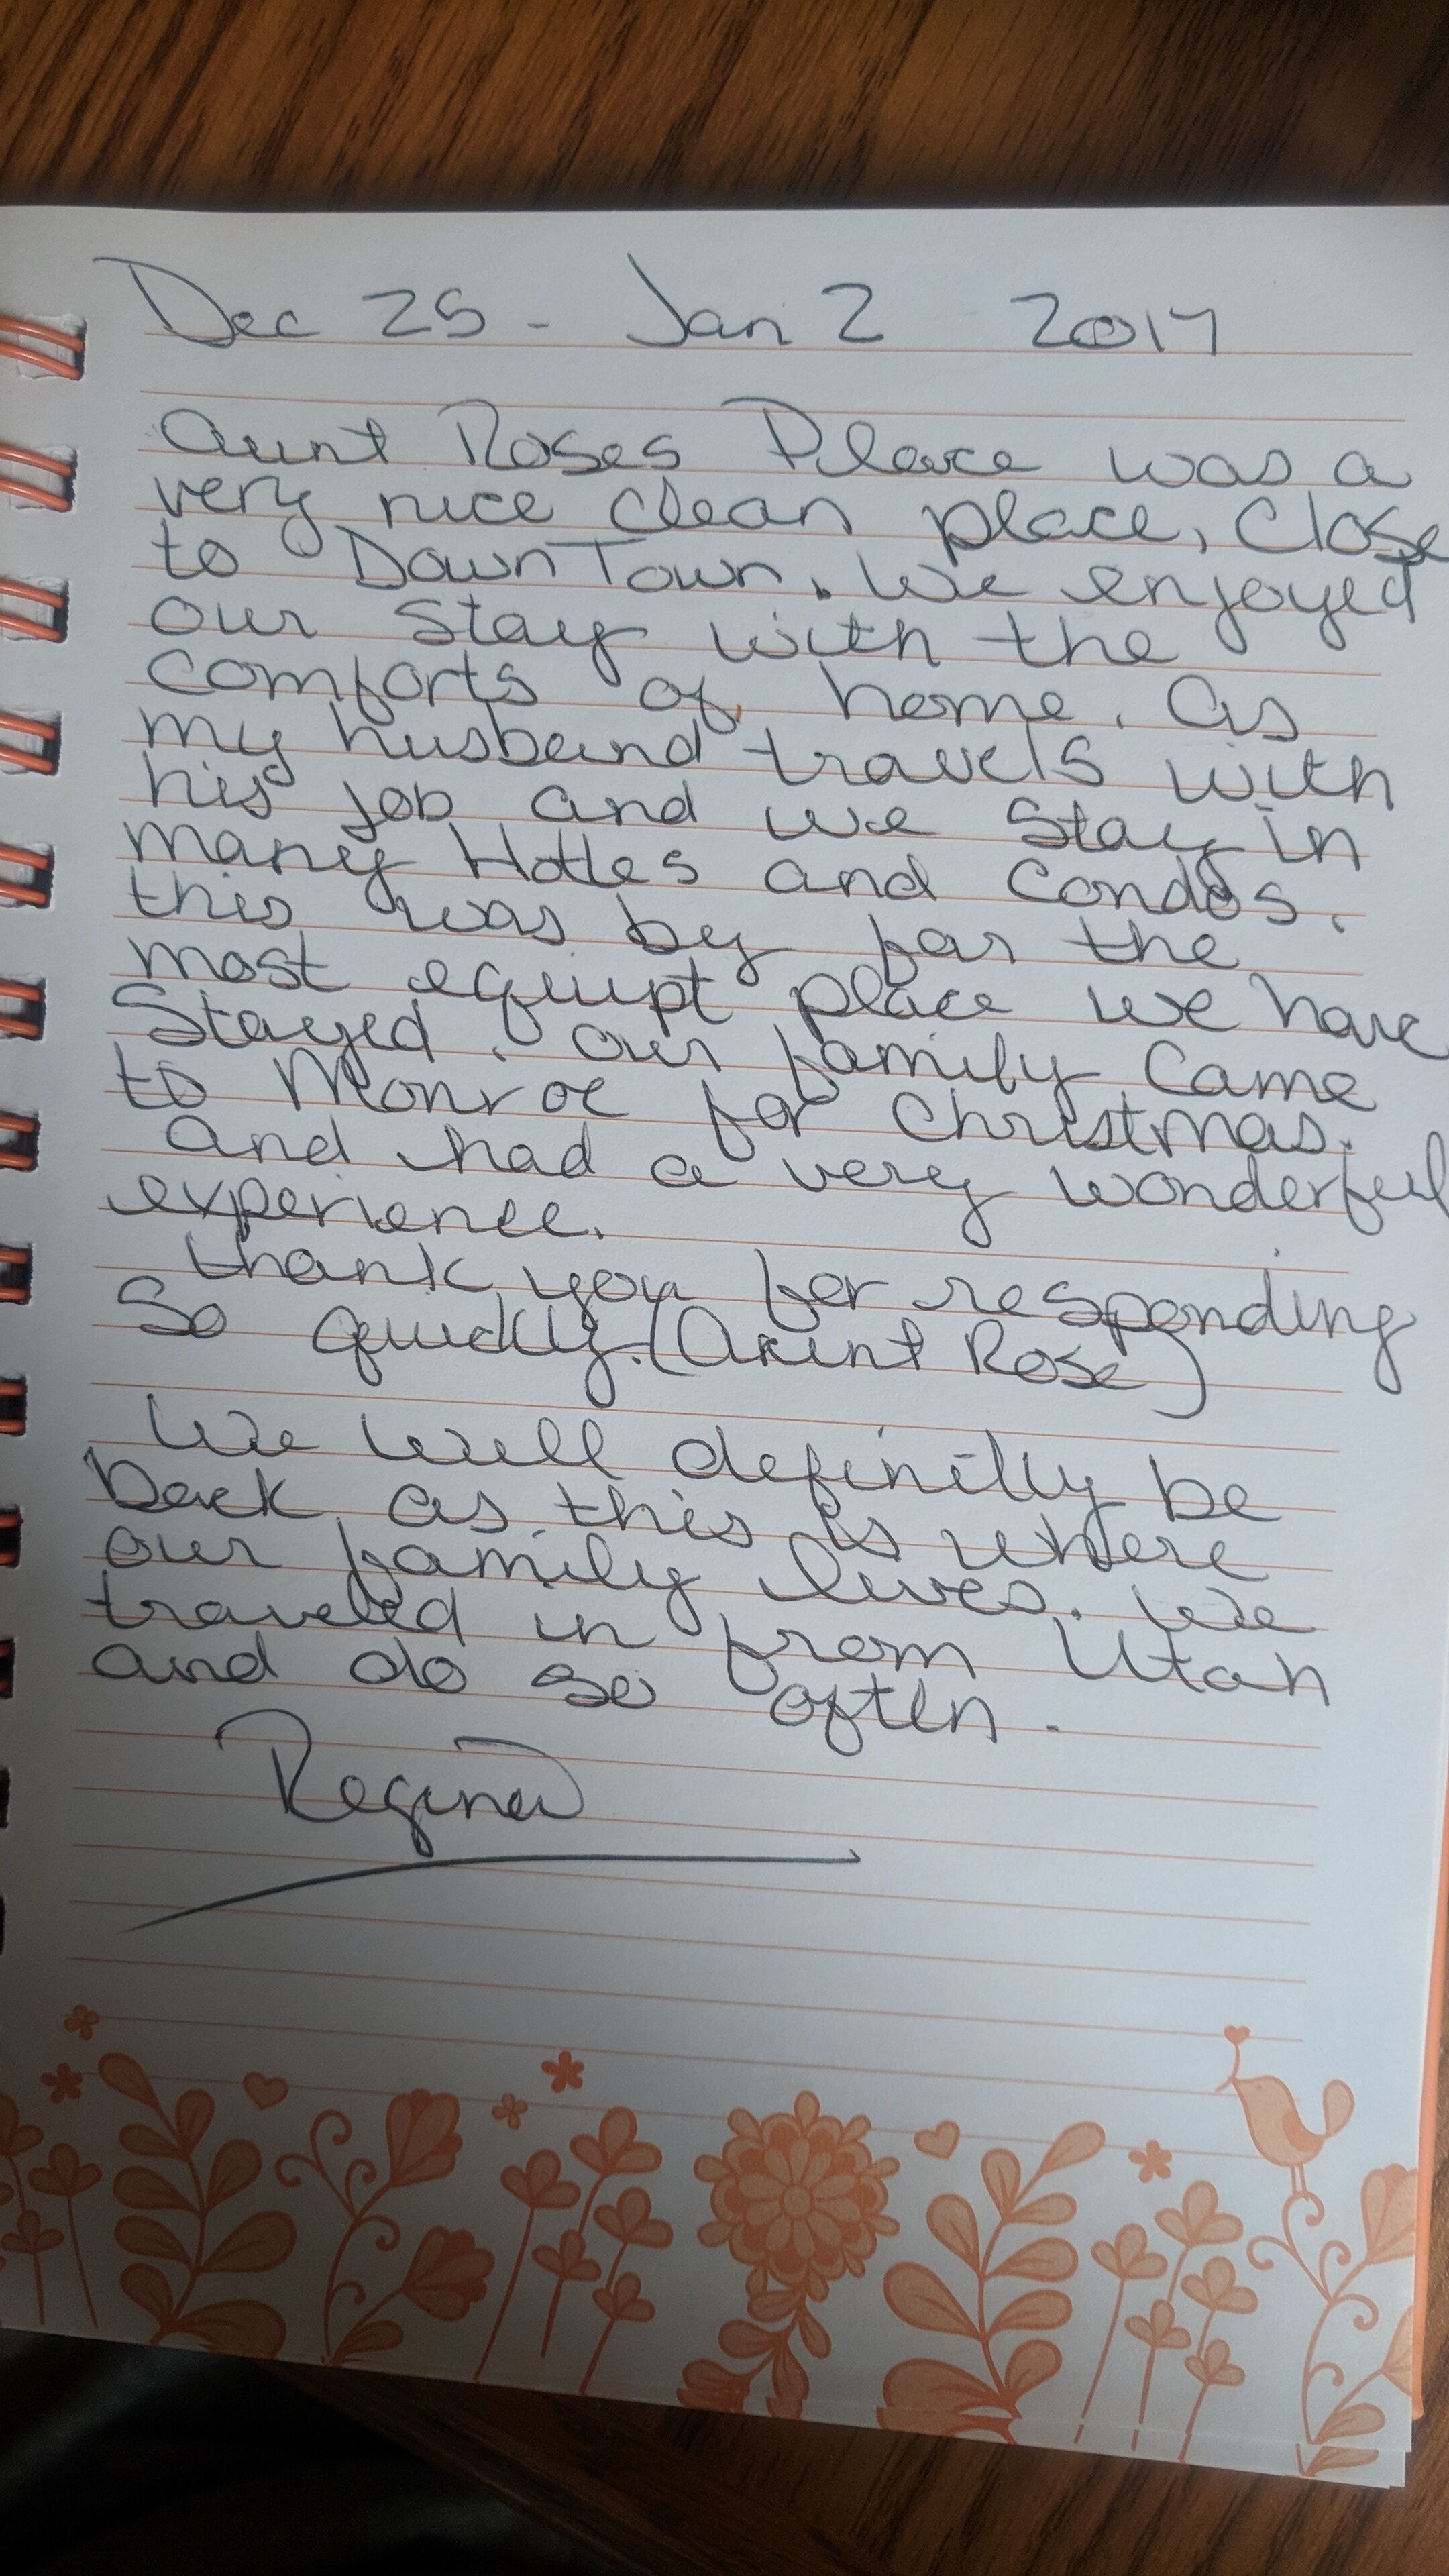 Dec 25 - Jan 2 2017
Aunt Roses Place was a
very nice clean place, Close
to DownTown. We enjoyed
our stay with the
comforts of home. as
my husband travels with
his job and we stay in
many Hotles and Condos.
this was by far the
most equipt place we have
Stayed. our family Came
to Monroe for Christmas.
and had a very wonderful
experience.
thank you for responding
So quickly. (Aunt Rose)
We will definitly be
back as this is where
our family lives. We
traveled in from Utah
and do so often.
Regina